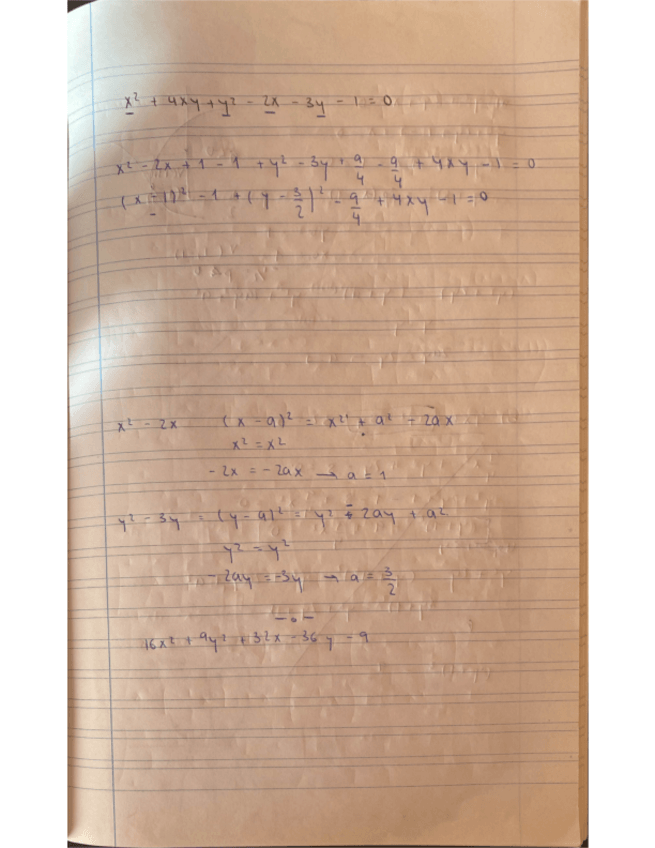 x² + 4xy + y² - 2x - 3y - 1 = 0
x² - 2x + 1 - 1 + y² - 3y + 9/4 - 9/4 + 4xy - 1 = 0
(x - 1)² - 1 + (y - 3/2)² - 9/4 + 4xy - 1 = 0
x² - 2x (x - a)² = x² + a² - 2ax
x² = x²
- 2x = - 2ax → a = 1
y² - 3y = (y - a)² = y² - 2ay + a²
y² = y²
- 2ay = -3y → a = 3/2
16x² + 9y² + 32x - 36y - 9